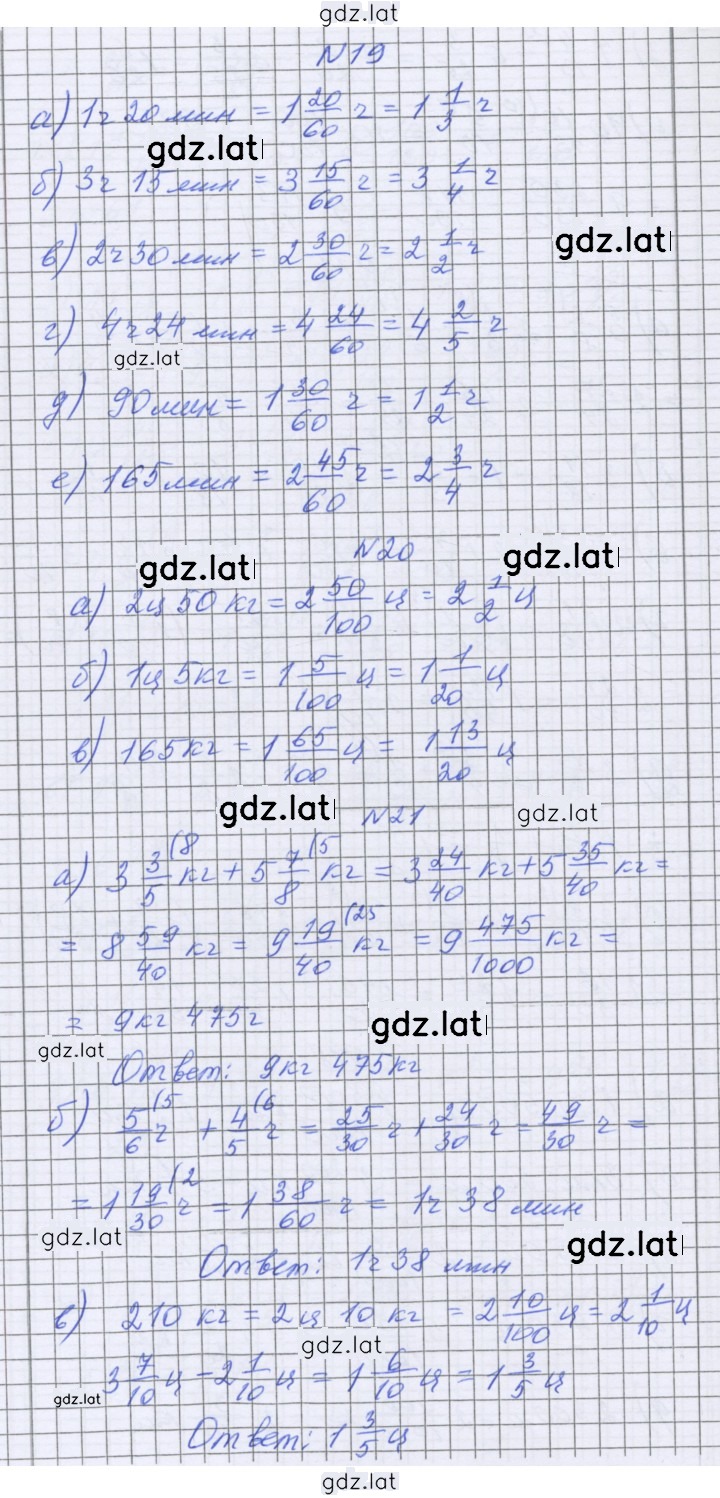 gdz.lat
N19
а) 1ч 20 мин = 1 20/60 ч = 1 1/3 ч
gdz.lat
б) 3ч 15 мин = 3 15/60 ч = 3 1/4 ч
gdz.lat
в) 2ч 30 мин = 2 30/60 ч = 2 1/2 ч
г) 4ч 24 мин = 4 24/60 = 4 2/5 ч
gdz.lat
д) 90 мин = 1 30/60 ч = 1 1/2 ч
е) 165 мин = 2 45/60 ч = 2 3/4 ч
N20
gdz.lat gdz.lat
а) 2ц 50 кг = 2 50/100 ц = 2 1/2 ц
б) 1ц 5кг = 1 5/100 ц = 1 1/20 ц
в) 165кг = 1 65/100 ц = 1 13/20 ц
gdz.lat N21 gdz.lat
а) 3 3/5 (8 кг + 5 7/8 (5 кг = 3 24/40 кг + 5 35/40 кг =
= 8 59/40 кг = 9 19/40 (25 кг = 9 475/1000 кг =
= 9кг 475г
gdz.lat
gdz.lat
Ответ: 9кг 475кг
б) 5/6 (5 ч + 4/5 (6 ч = 25/30 ч + 24/30 ч = 49/30 ч =
= 1 19/30 (2 ч = 1 38/60 ч = 1ч 38 мин
gdz.lat
gdz.lat
Ответ: 1ч 38 мин
в) 210 кг = 2ц 10 кг = 2 10/100 ц = 2 1/10 ц
gdz.lat
3 7/10 ц - 2 1/10 ц = 1 6/10 ц = 1 3/5 ц
gdz.lat
Ответ: 1 3/5 ц
gdz.lat